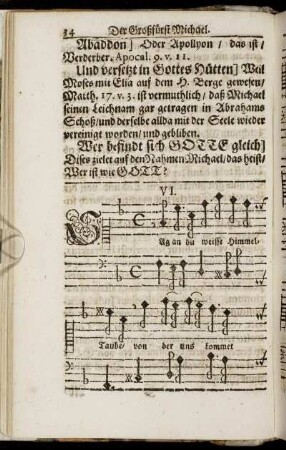 34 Der Großfürst Michael.
Abaddon] Oder Apollyon / das ist /
Verderber. Apocal. 9. v. 11.
Und versetzt in Gottes Hütten] Weil
Moses mit Elia auf dem H. Berge gewesen /
Matth. 17. v. 3. ist vermuthlich / daß Michael
seinen Leichnam gar getragen in Abrahams
Schoß / und derselbe allda mit der Seele wieder
vereinigt worden / und gebliben.
Wer befindt sich GOTTE gleich]
Dises zielet auf den Nahmen Michael / das heist /
Wer ist wie GOTT?
VI.
SAg an du weisse Himmel-
Taube / von der uns kommet